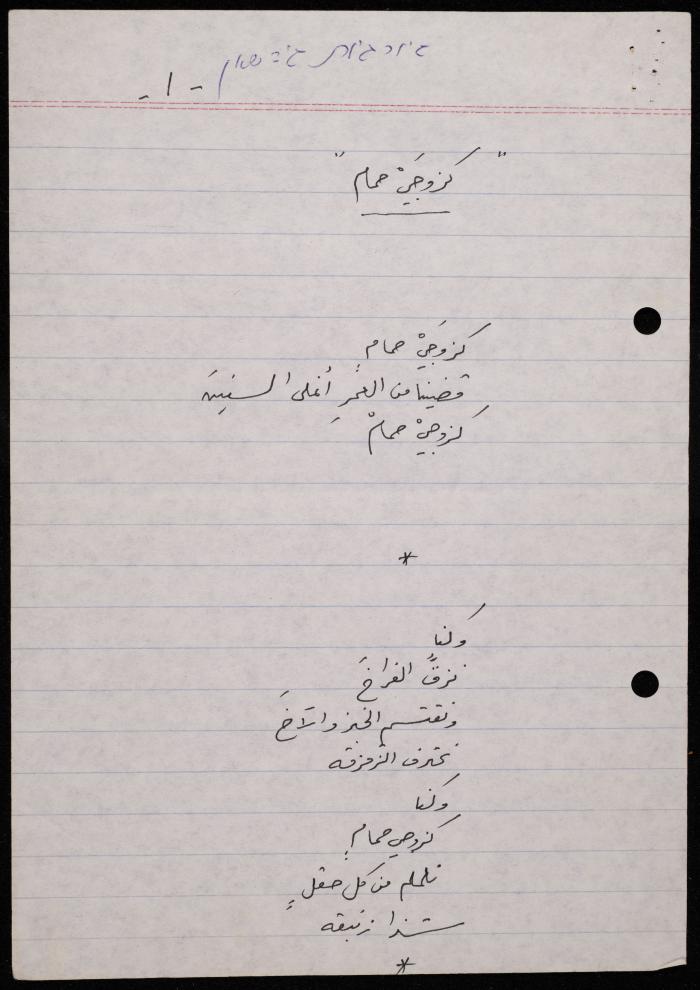 - ١ -
" كزوجَيْ حمام "
كزوجَيْ حمامٍ
قضينا من العُمرِ أغلى السنين
كزوجيْ حمامْ
*
وكنا
نزقُّ الفراخَ
ونقتسم الخبز والآخَ
نحترف الزقزقه
وكنا
كزوجي حمامٍ
نلملم من كل حقلٍ
شذا زنبقه
*